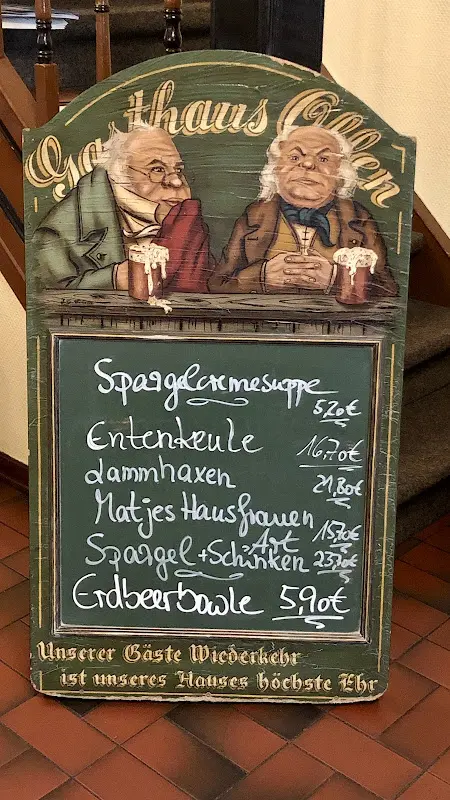 Gasthaus Ollen
Spargelcremesuppe
5,20€
Entenkeule 16,70€
Lammhaxen 21,80€
Matjes Hausfrauen
Art 15,10€
Spargel + Schinken 23,20€
Erdbeerbowle 5,90€
Unserer Gäste Wiederkehr
ist unseres Hauses höchste Ehr